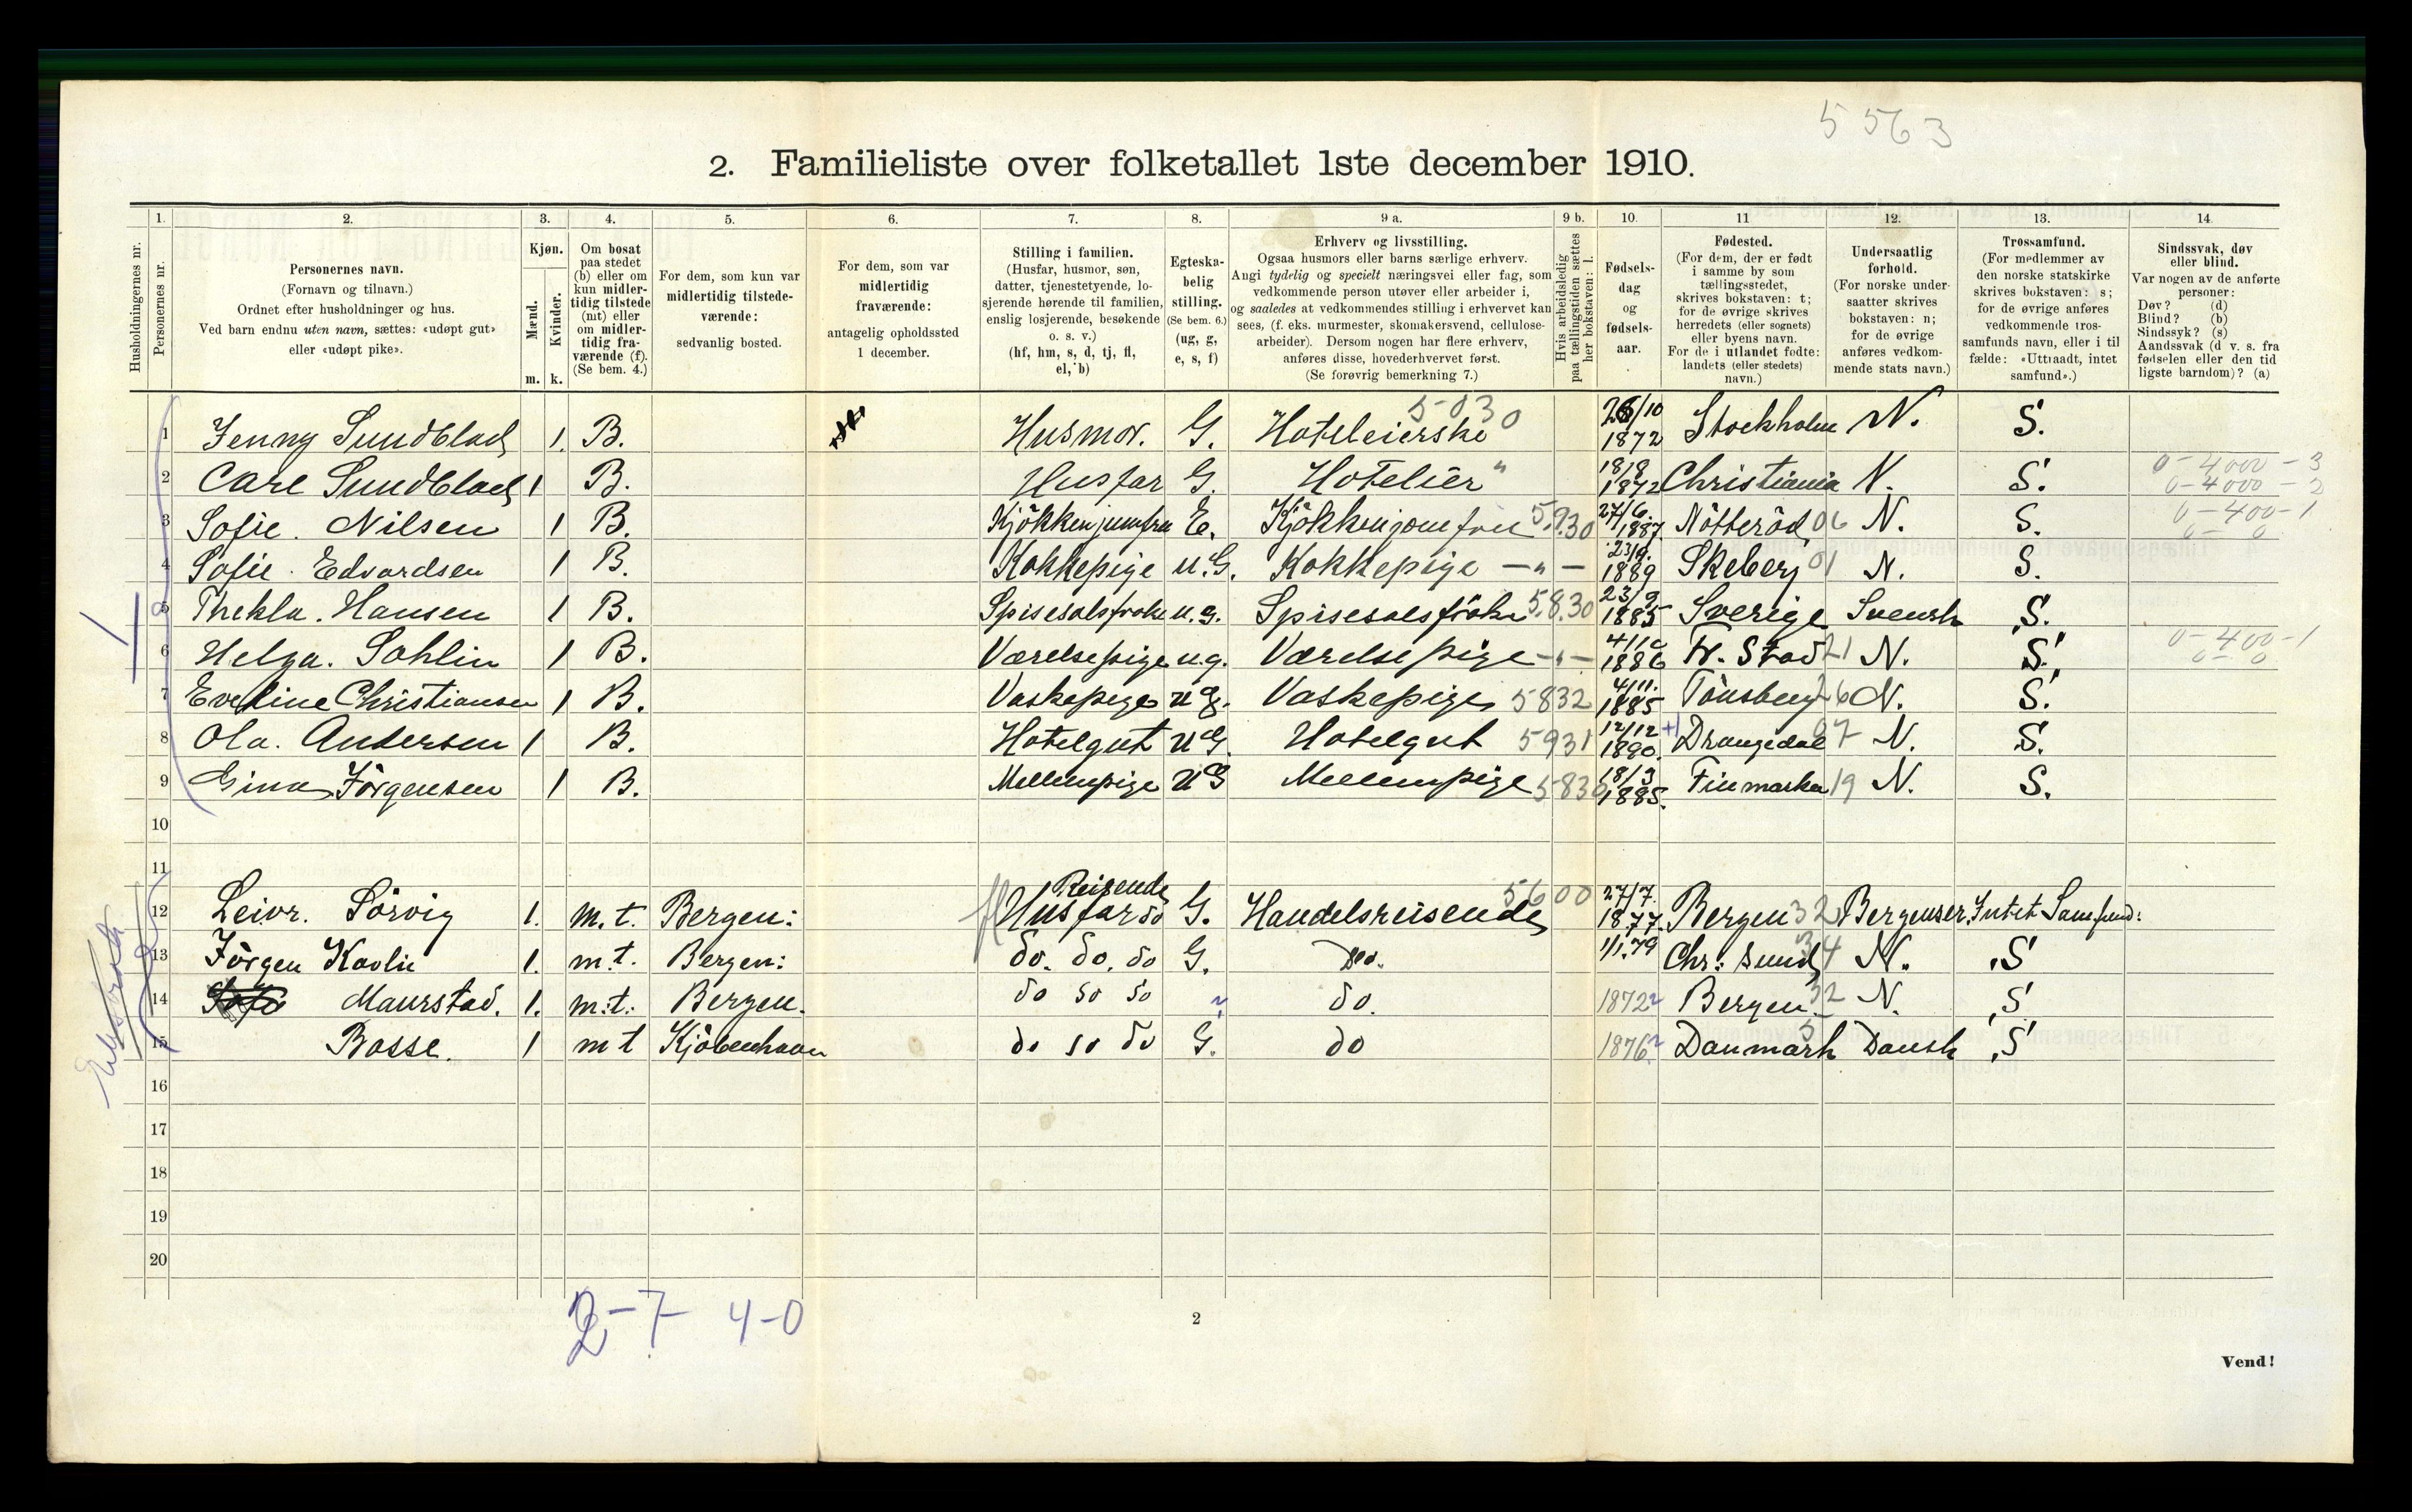 5563
2. Familieliste over folketallet 1ste december 1910.
1. 2. 3. 4. 5. 6. 7. 8. 9 a. 9 b. 10. 11 12. 13. 14.
Husholdningernes nr.
Personernes nr.
Personernes navn.
(Fornavn og tilnavn.)
Ordnet efter husholdninger og hus.
Ved barn endnu uten navn, sættes: «udøpt gut»
eller «udøpt pike».
Kjøn.
Mænd.
Kvinder.
m. k.
Om bosat
paa stedet
(b) eller om
kun midler-
tidig tilstede
(mt) eller
om midler-
tidig fra-
værende (f).
(Se bem. 4.)
For dem, som kun var
midlertidig tilstede-
værende:
sedvanlig bosted.
For dem, som var
midlertidig
fraværende:
antagelig opholdssted
1 december.
Stilling i familien.
(Husfar, husmor, søn,
datter, tjenestetyende, lo-
sjerende hørende til familien,
enslig losjerende, besøkende
o. s. v.)
(hf, hm, s, d, tj, fl,
el, b)
Egteska-
belig
stilling.
(Se bem. 6.)
(ug, g,
e, s, f)
Erhverv og livsstilling.
Ogsaa husmors eller barns særlige erhverv.
Angi tydelig og specielt næringsvei eller fag, som
vedkommende person utøver eller arbeider i,
og saaledes at vedkommendes stilling i erhvervet kan
sees, (f. eks. murmester, skomakersvend, cellulose-
arbeider). Dersom nogen har flere erhverv,
anføres disse, hovederhvervet først.
(Se forøvrig bemerkning 7.)
Hvis arbeidsledig
paa tællingstiden sættes
her bokstaven: l.
Fødsels-
dag
og
fødsels-
aar.
Fødested.
(For dem, der er født
i samme by som
tællingsstedet,
skrives bokstaven: t;
for de øvrige skrives
herredets (eller sognets)
eller byens navn.
For de i utlandet fødte:
landets (eller stedets)
navn.)
Undersaatlig
forhold.
(For norske under-
saatter skrives
bokstaven: n;
for de øvrige
anføres vedkom-
mende stats navn.)
Trossamfund.
(For medlemmer av
den norske statskirke
skrives bokstaven: s;
for de øvrige anføres
vedkommende tros-
samfunds navn, eller i til
fælde: «Uttraadt, intet
samfund».)
Sindssvak, døv
eller blind.
Var nogen av de anførte
personer:
Døv? (d)
Blind? (b)
Sindssyk? (s)
Aandssvak (d v. s. fra
fødselen eller den tid
ligste barndom)? (a)
1 Jenny Sundblad 1. B. Husmor. G. Hoteleierske 5030 26/10 1872 Stockholm N. S.
2 Carl Sundblad 1 B. Husfar G. Hotelier " 18/8 1872 Christiania N. S. 0-4000-3 0-4000-2
3 Sofie. Nilsen 1 B. Kjökkenjomfru E. Kjökkenjomfru 5830 27/6. 1887. Nötteröd 06 N. S. 0-400-1 0-0
4 Sofie. Edvardsen 1 B. Kokkepige u.G. Kokkepige —"— 23/9. 1889 Skeberj 01 N. S.
5 Thekla. Hansen 1 B. Spisesalsfröken u.g. Spisesalsfröken 5830 23/9 1885 Sverige Svensk S.
6 Helga. Sohlin 1 B. Værelsepige u.g. Værelsepige —"— 4/10 1886 Fr. Stad 21 N. S. 0-400-1 0-0
7 Eveline Christiansen 1 B. Vaskepige ug. Vaskepige 5832 4/11. 1885 Tönsberg 26 N. S.
8 Ola. Andersen 1 B. Hotelgut UG. Hotelgut 5931 12/12 1890. +1 Drangedal 07 N. S.
9 Gina Jörgensen 1 B. Mellempige UG Mellempige 5830 18/3 1885. Finmarken 19 N. S.
10
11
12 Leivr. Sörvig 1. m.t. Bergen: fl Reisende Husfar do G. Handelsreisende 5600 27/7. 1877. Bergen 32 Bergenser. Intet Samfund:
13 Jörgen Kavlie 1. m.t. Bergen: do. do. do G. Do. 1/1.79 Chr: sund, 34 N. S
14 Maurstad. 1. m.t. Bergen. do do do ~ do. 1872 Bergen. 32 N. S
15 Bosse. 1 m t Kjöbenhavn do do do G. do 1876 Danmark 5 Dansk S
16
17
18
19
20
2-7 4-0
2
Vend!